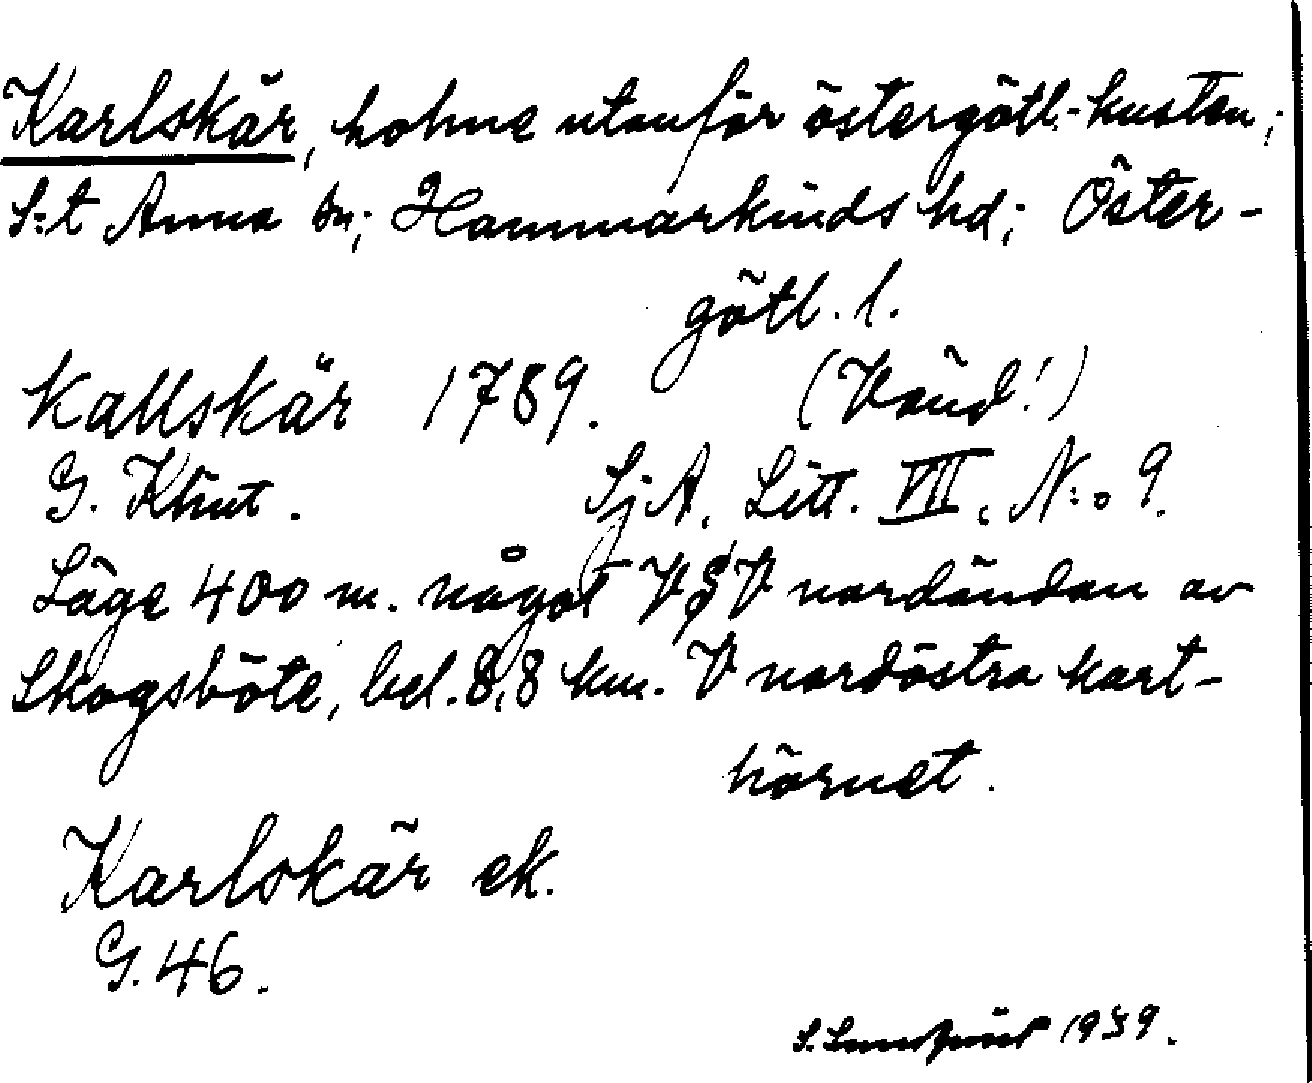 Karlskär, holme utanför östergötl.-kusten;
S:t Anna sn; Hammarkinds hd; Öster-
götl. l.
Kallskär 1789. (Vänd!)
G. Klint. SjA, Litt. VII, N:o 9.
Läge 400 m. något VSV nordändan av
Skogsböte, bel. 8,8 km. V nordöstra kart-
hörnet.
Karlskär ek.
G. 46.
S. 1939.